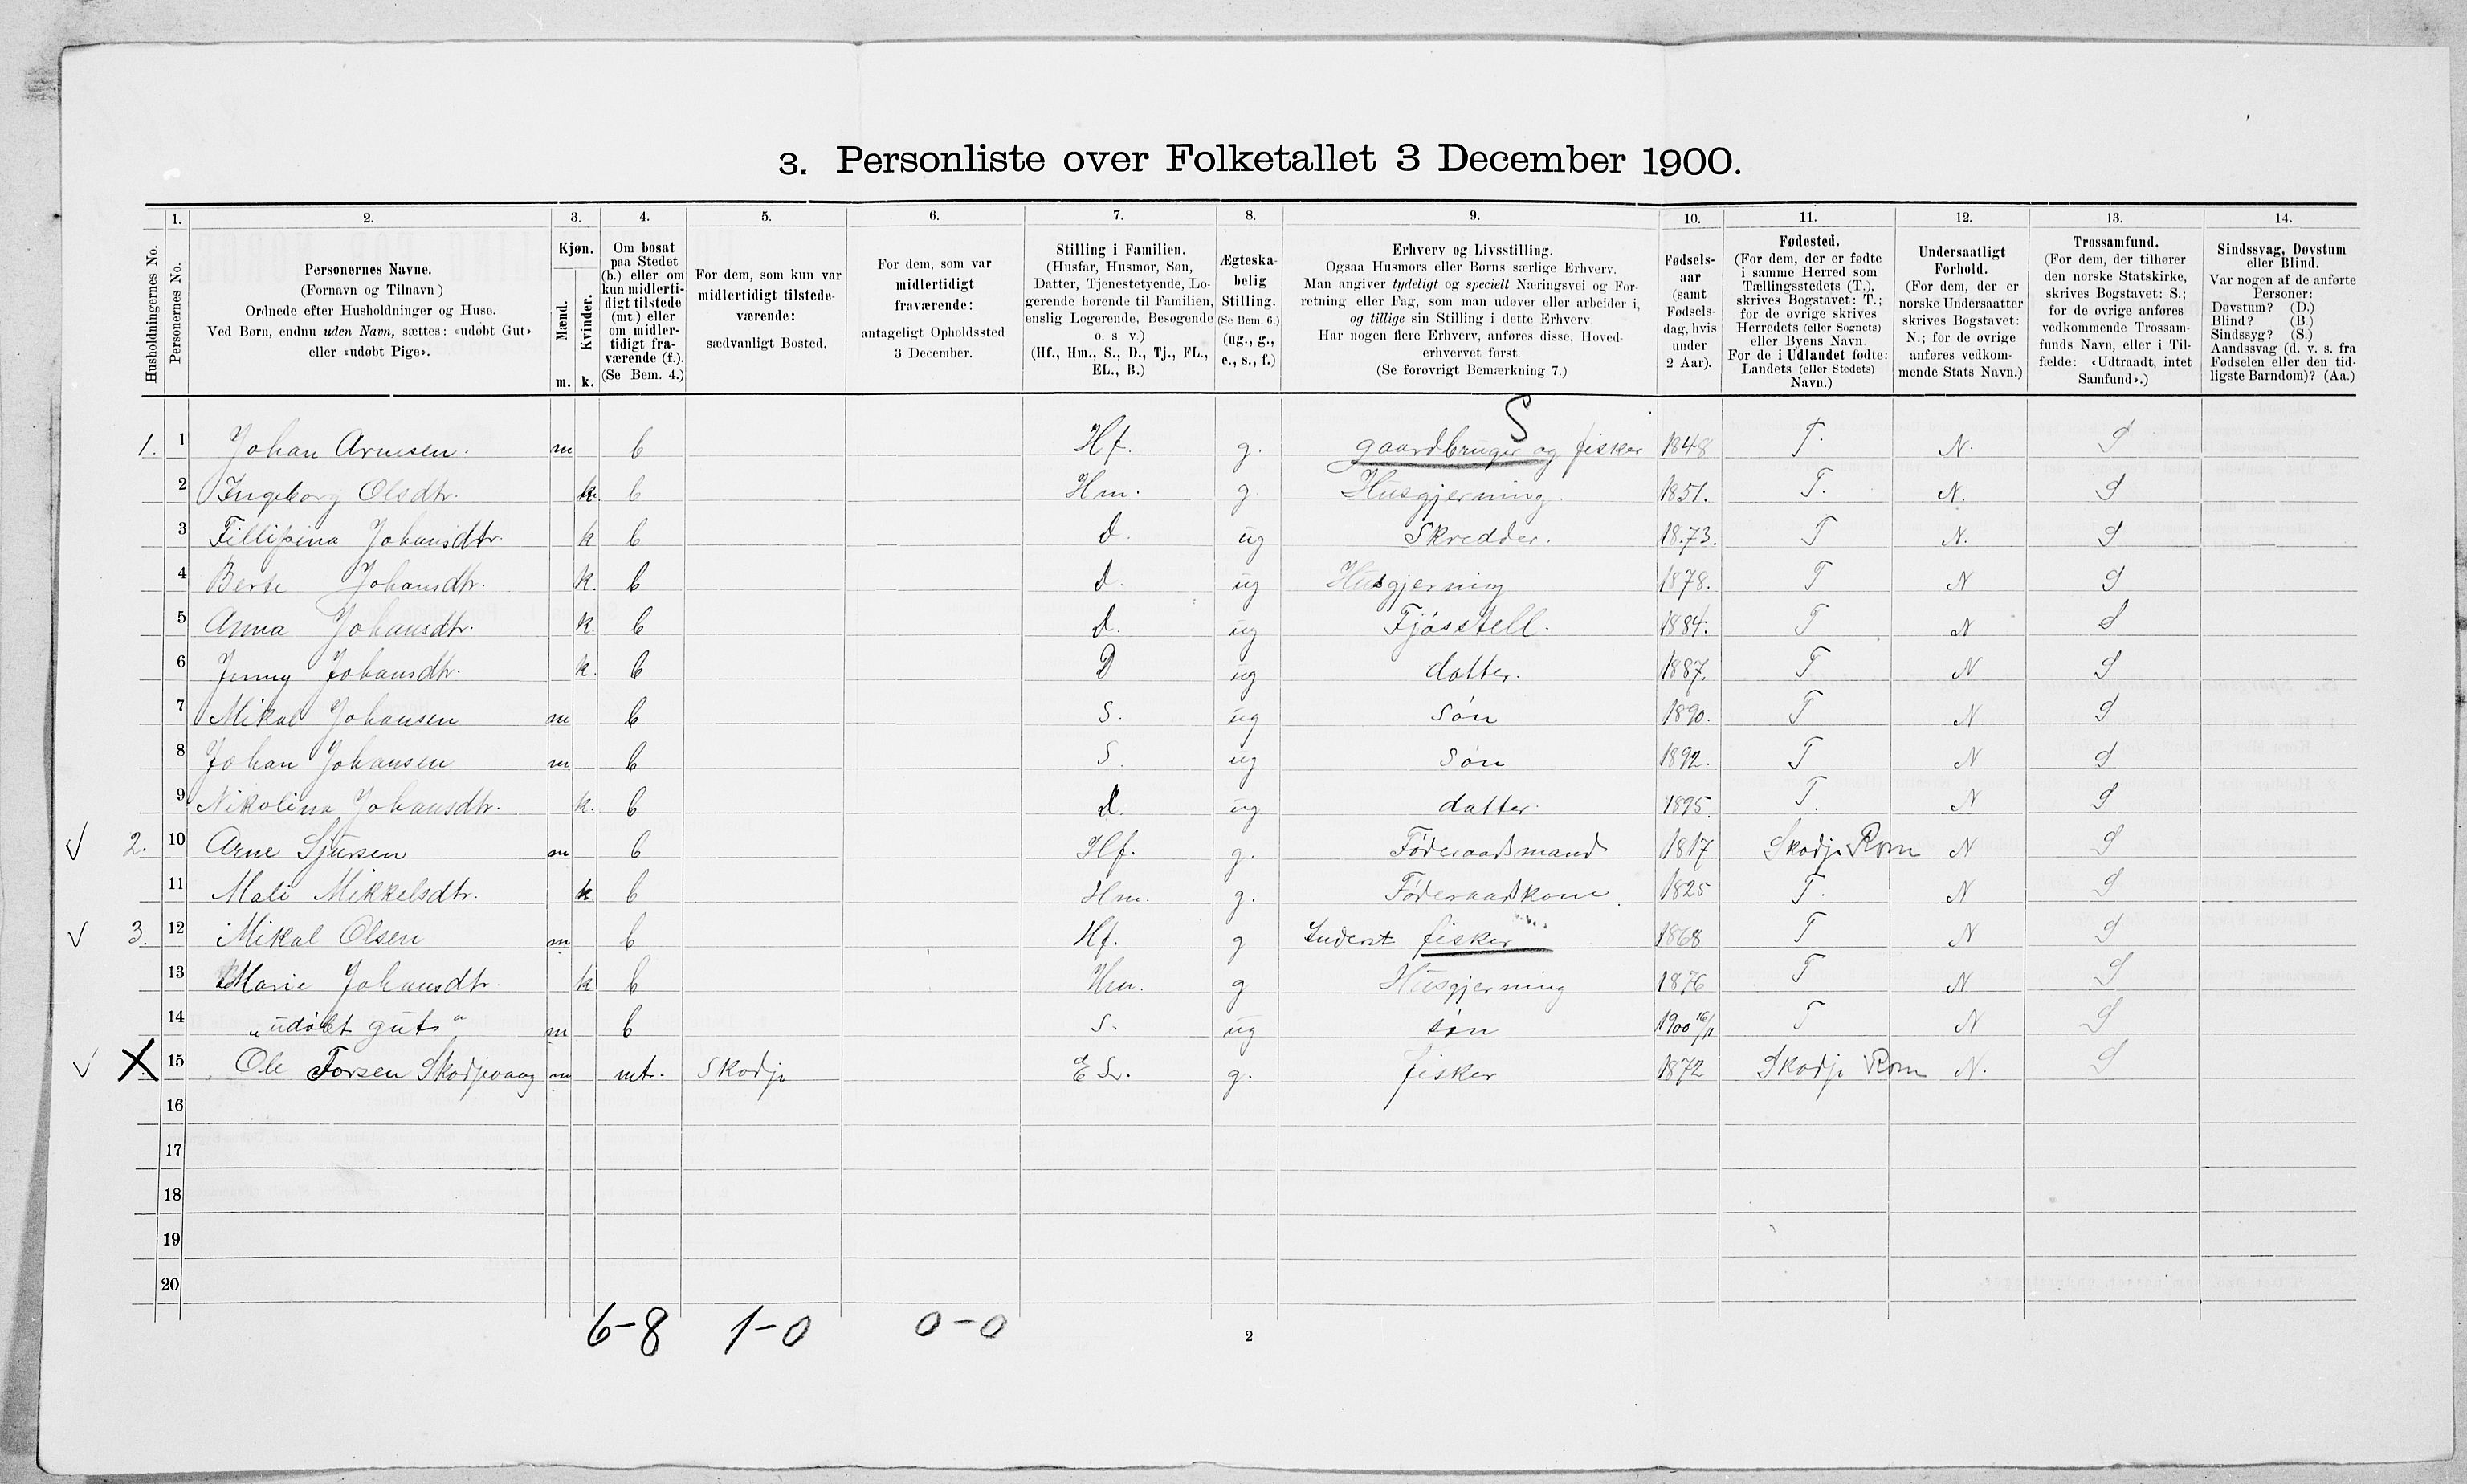 3. Personliste over Folketallet 3 December 1900.
1. 2. 3. 4. 5. 6. 7. 8. 9. 10. 11. 12. 13. 14.
Husholdningernes No.
Personernes No.
Personernes Navne.
(Fornavn og Tilnavn)
Ordnede efter Husholdninger og Huse.
Ved Børn, endnu uden Navn, sættes: «udøbt Gut»
eller «udøbt Pige».
Kjøn.
Mænd.
Kvinder.
m. k.
Om bosat
paa Stedet
(b.) eller om
kun midlerti-
digt tilstede
(mt.) eller
om midler-
tidigt fra-
værende (f.).
(Se Bem. 4.)
For dem, som kun var
midlertidigt tilstede-
værende:
sædvanligt Bosted.
For dem, som var
midlertidigt
fraværende:
antageligt Opholdssted
3 December.
Stilling i Familien.
(Husfar, Husmor, Søn,
Datter, Tjenestetyende, Lo-
gerende hørende til Familien,
enslig Logerende, Besøgende
o. s v.)
(Hf., Hm., S., D., Tj., FL.,
EL., B.)
Ægteska-
belig
Stilling.
(Se Bem. 6.)
(ug., g.,
e., s., f.)
Erhverv og Livsstilling.
Ogsaa Husmors eller Børns særlige Erhverv.
Man angiver tydeligt og specielt Næringsvei og For-
retning eller Fag, som man udøver eller arbeider i,
og tillige sin Stilling i dette Erhverv.
Har nogen flere Erhverv, anføres disse, Hoved-
erhvervet først.
(Se forøvrigt Bemærkning 7.)
Fødsels-
aar
(samt
Fødsels-
dag, hvis
under
2 Aar).
Fødested.
(For dem, der er fødte
i samme Herred som
Tællingsstedets (T.),
skrives Bogstavet: T.;
for de øvrige skrives
Herredets (eller Sognets)
eller Byens Navn.
For de i Udlandet fødte:
Landets (eller Stedets)
Navn.)
Undersaatligt
Forhold.
(For dem, der er
norske Undersaatter
skrives Bogstavet:
N.; for de øvrige
anføres vedkom-
mende Stats Navn.)
Trossamfund.
(For dem, der tilhører
den norske Statskirke,
skrives Bogstavet: S.;
for de øvrige anføres
vedkommende Trossam-
funds Navn, eller i Til-
fælde: «Udtraadt, intet
Samfund».)
Sindssvag, Døvstum
eller Blind.
Var nogen af de anførte
Personer:
Døvstum? (D.)
Blind? (B.)
Sindssyg? (S.)
Aandssvag (d. v. s. fra
Fødselen eller den tid-
ligste Barndom)? (Aa.)
S
1. 1 Johan Arnesen. m b Hf. g. gaardbruger og fisker 1848 T. N. S
2 Ingeborg Olsdtr. k. b Hm. g. Husgjerning. 1851. T. N. S
3 Fillipina Johansdtr. k b D. ug Skredder. 1873. T N. S
4 Berte Johansdtr. k. b D. ug Husgjerning 1878. T N S
5 Anna Johansdtr. k. b D. ug Fjøsstell. 1884. T N S
6 Jenny Johansdtr. k. b D ug datter. 1887. T N S
7 Mikal Johansen m b S. ug Søn 1890. T N S
8 Johan Johansen m b S. ug Søn 1892. T N S
9 Nikolina Johansdtr. k. b D. ug datter. 1895. T. N S
2. 10 Arne Sjursen m b Hf. g. Føderaadsmand 1817 Skodje Rom N S
11 Mali Mikkelsdtr. k b Hm. g. Føderaadskone. 1825 T. N S
3. 12 Mikal Olsen m b Hf. g Inderst fisker 1868 T N S
13 Marie Johansdtr. k b Hm. g Husgjerning 1876 T N S
14 „udøbt gut“ m b S. ug søn 1900 16/11 T N S
X 15 Ole Torsen Skodjevaag m mt. Skodje EL. g. fisker 1872 Skodje Rom N. S
16
17
18
19
20
6-8 1-0 0-0
2